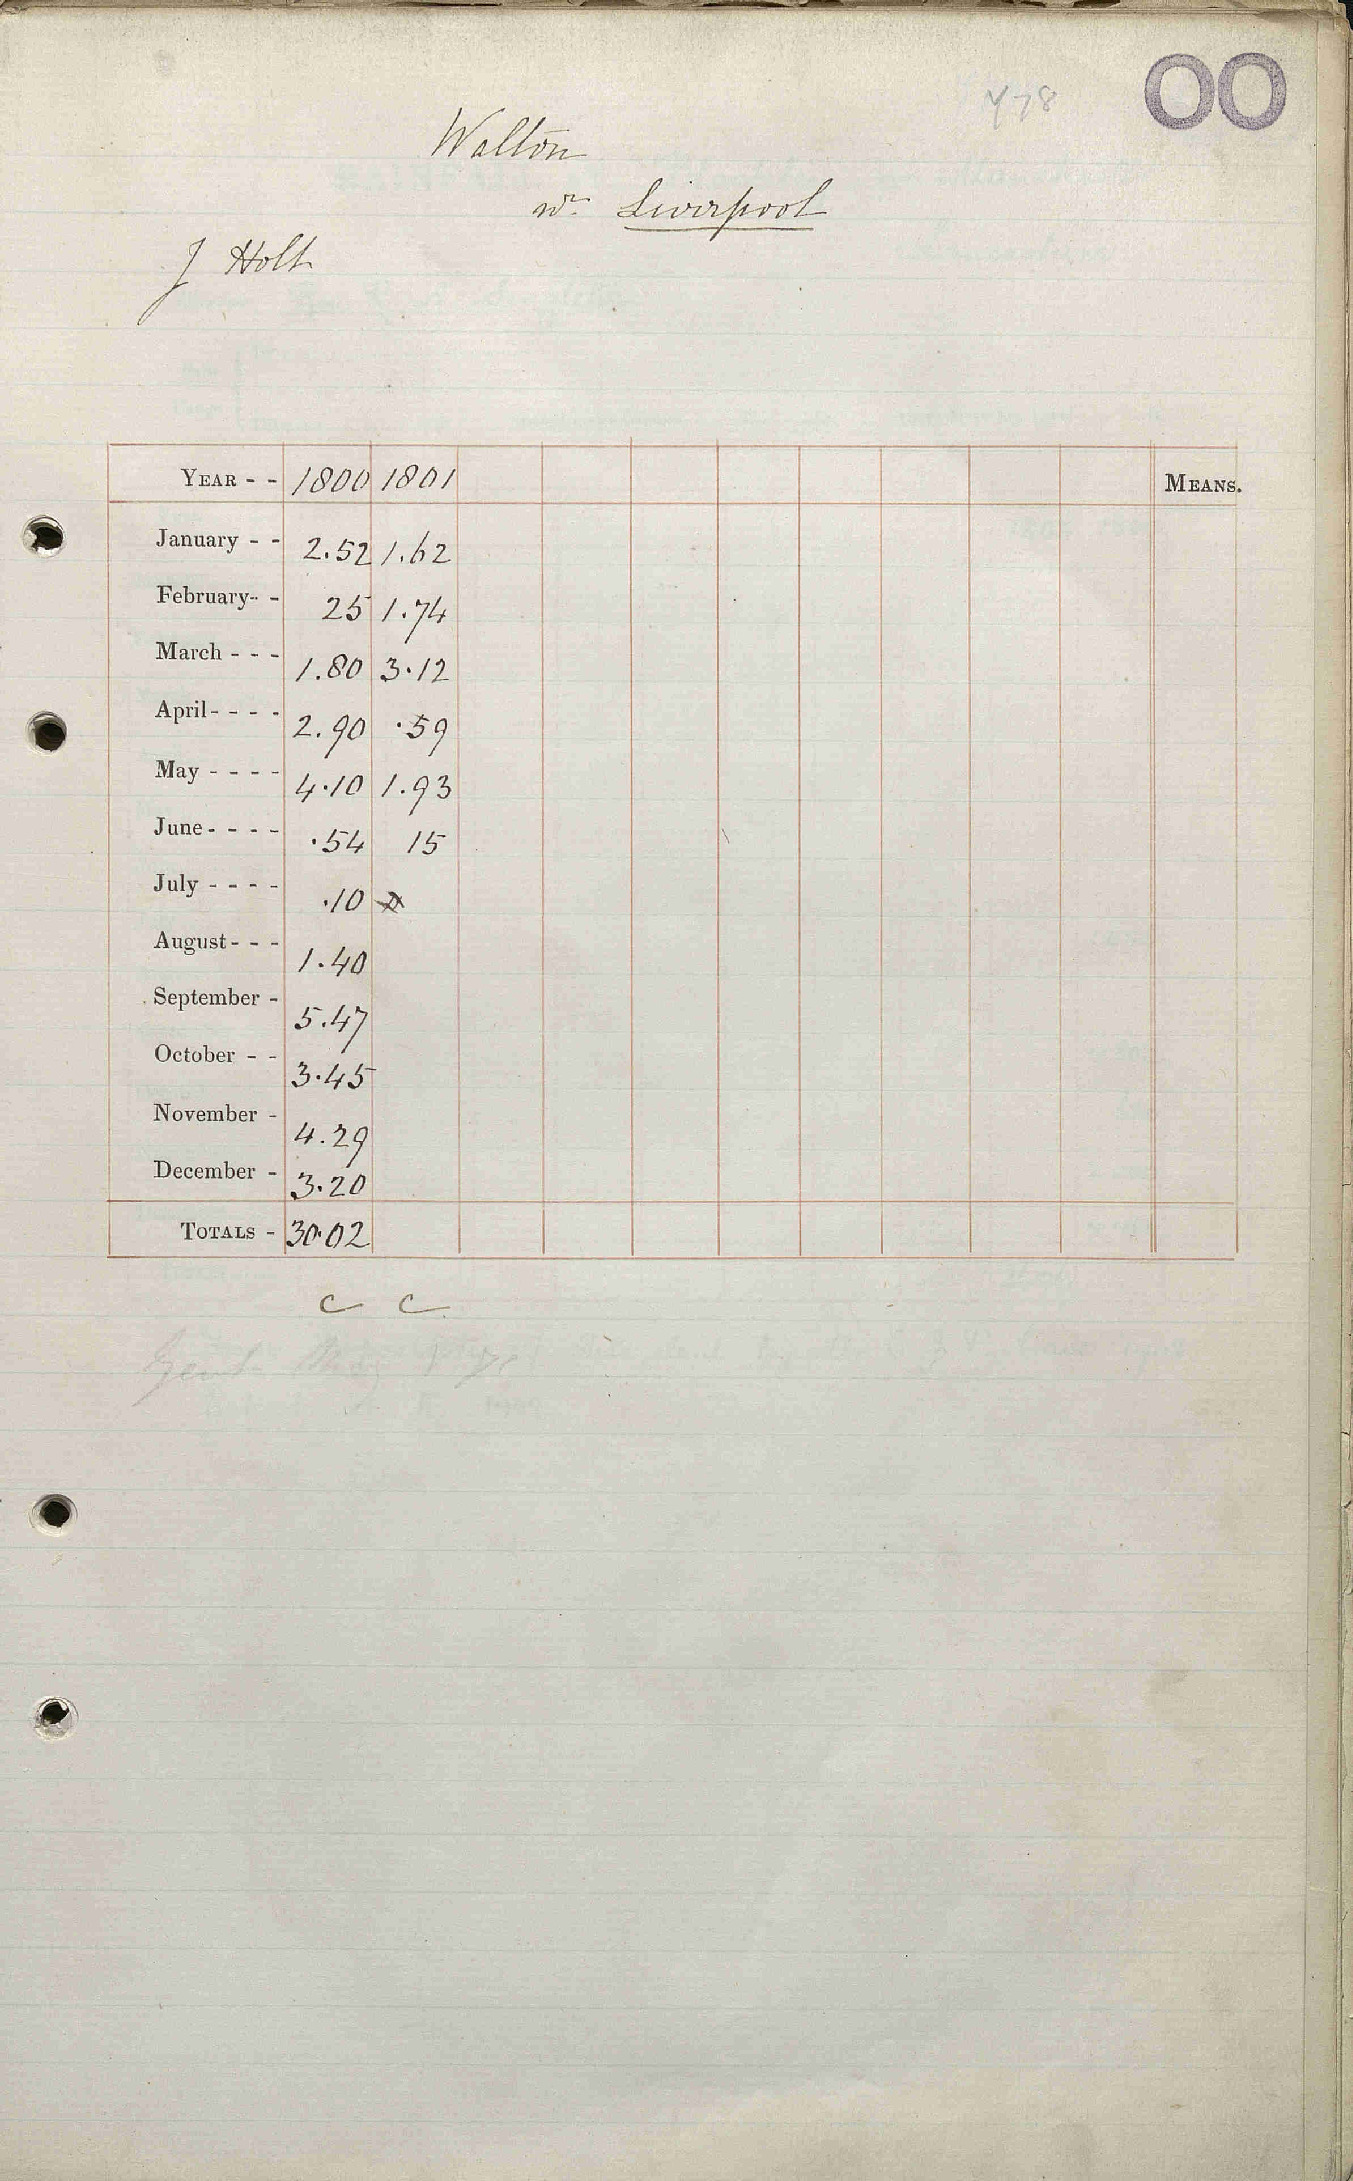 OO
478
Walton
nr. Liverpool
J Holt
YEAR - - 1800 1801 MEANS.
January - - 2.52 1.62
February - - 25 1.74
March - - - 1.80 3.12
April - - - - 2.90 .59
May - - - - 4.10 1.93
June - - - - .54 15
July - - - - .10
August - - - 1.40
September - 5.47
October - - 3.45
November - 4.29
December - 3.20
TOTALS - 30.02
c c
Gent. Mag